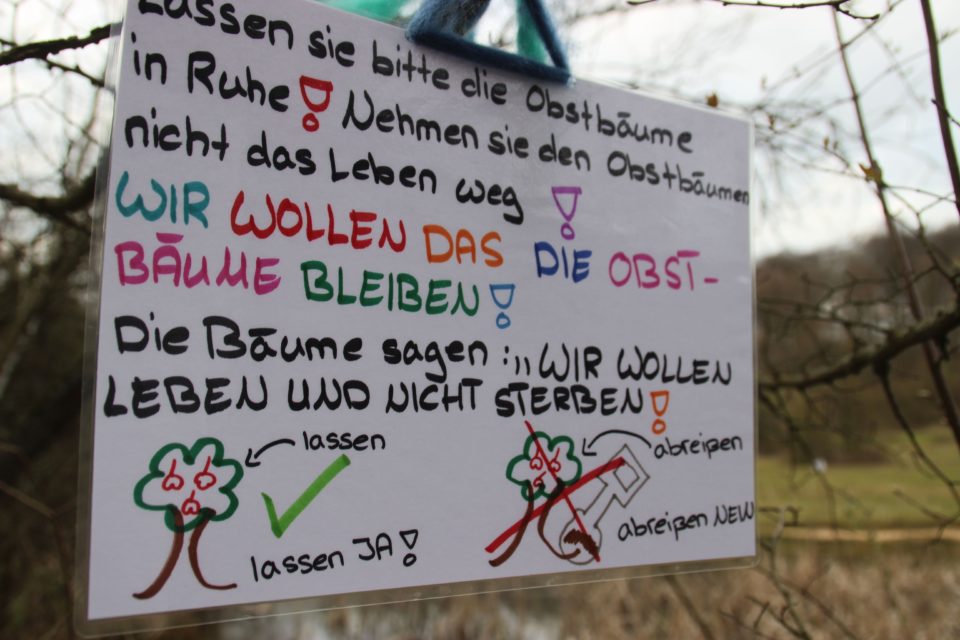 Lassen sie bitte die Obstbäume
in Ruhe! Nehmen sie den Obstbäumen
nicht das Leben weg!
WIR WOLLEN DAS DIE OBST-
BÄUME BLEIBEN!
Die Bäume sagen: „WIR WOLLEN
LEBEN UND NICHT STERBEN!
lassen
abreißen
lassen JA!
abreißen NEIN